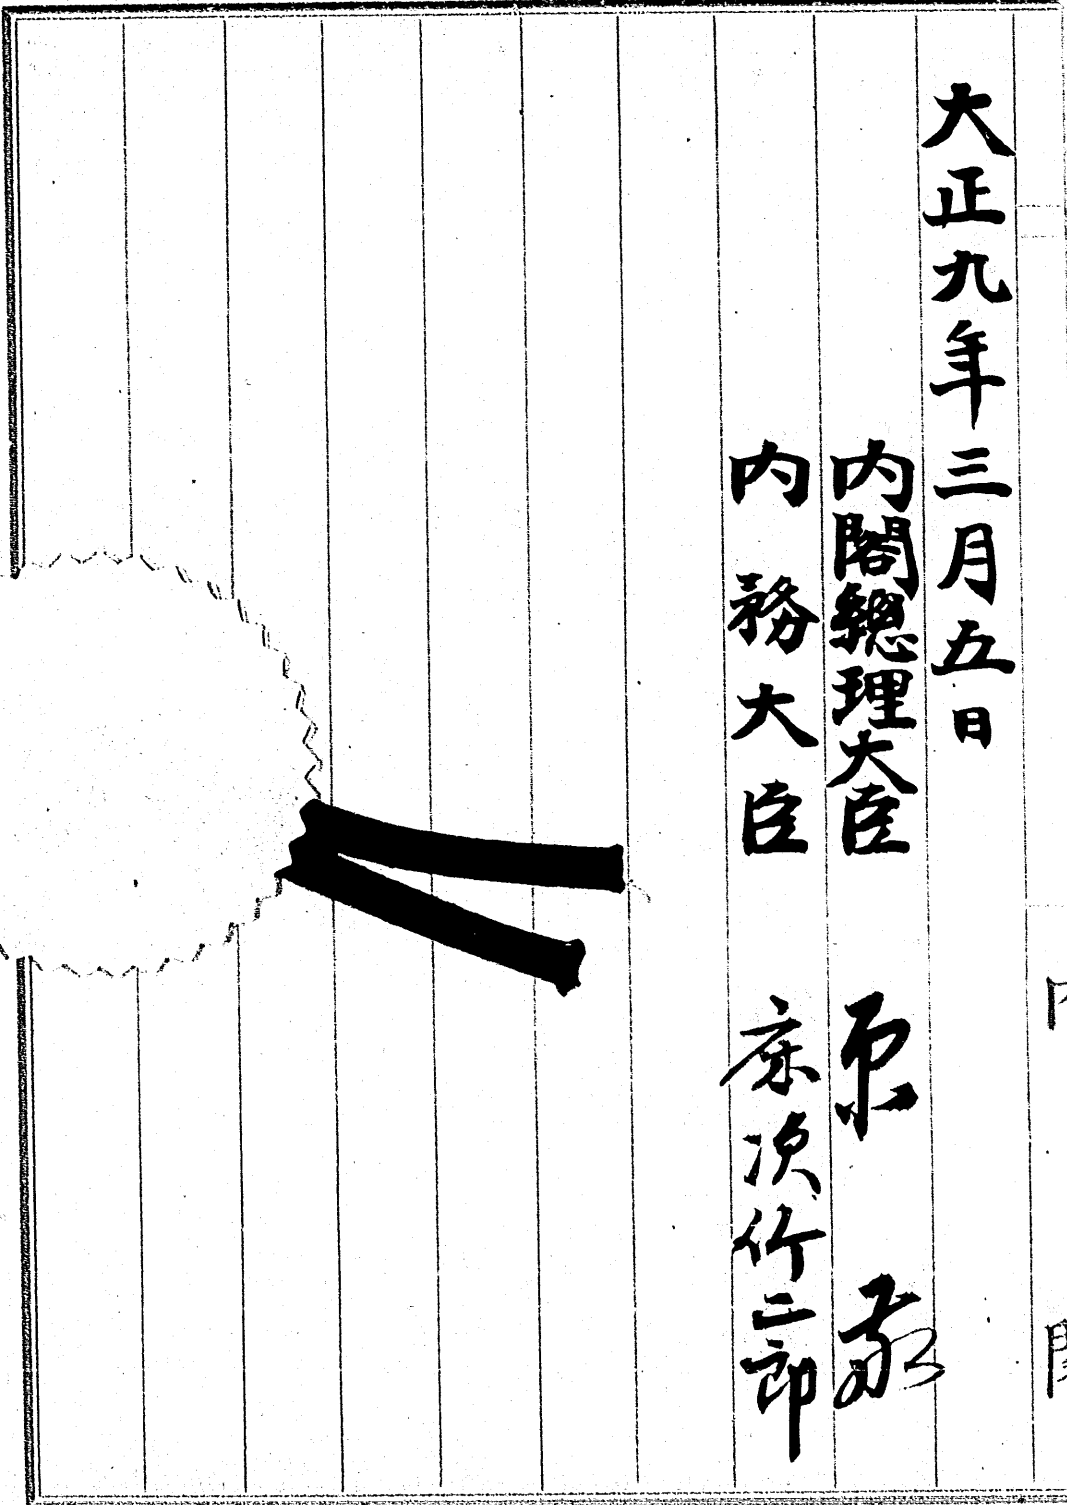 大正九年三月五日
内閣總理大臣 原敬
内務大臣 床次竹二郎
内閣